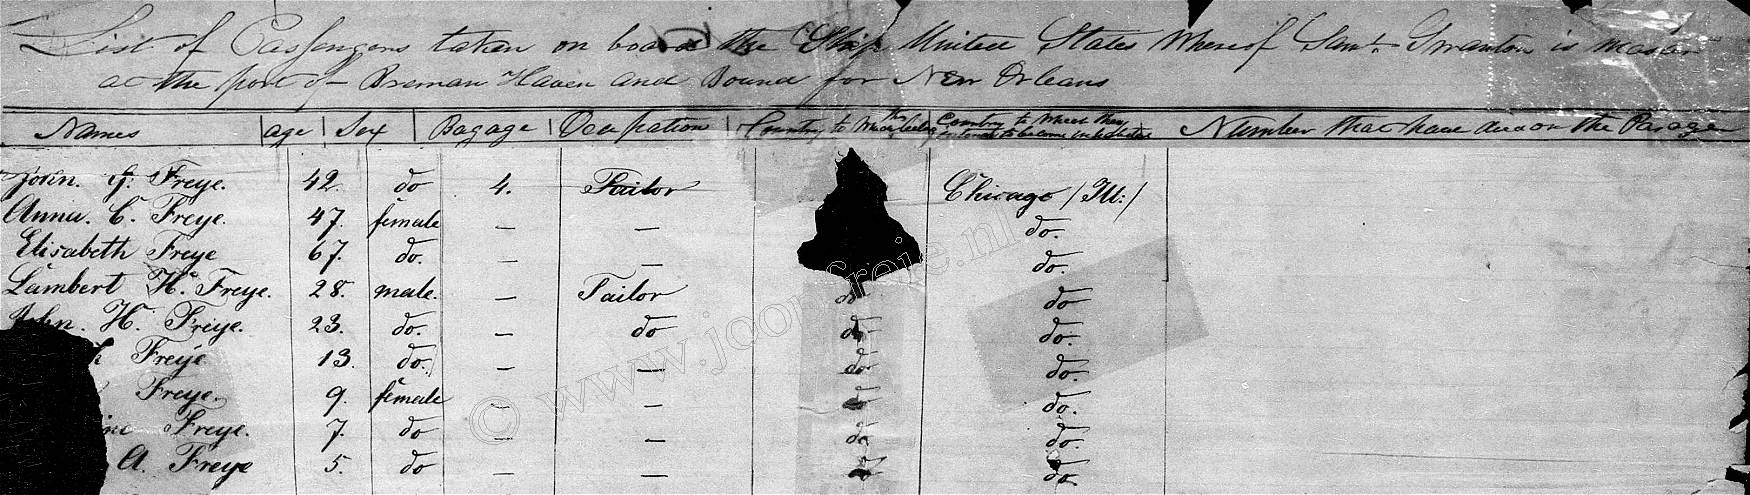 List of Passengers taken on board the Ship United States Whereof Saml. Swanton is master
at the port of Breman Haven and Bound for New Orleans
Names age Sex Bagage Occupation Country to Which they Country to Which they Number that have died on the Passage
intend to become inhabitants
John. G. Freye. 42. do 4. Tailor Chicago / Ill: /
Anna. C. Freye. 47. female — — do.
Elisabeth Freye 67. do. — — do.
Lambert H. Freye. 28. male. — Tailor do do
John. H. Freye. 23. do. — do do do.
h Freye 13. do. — — do do.
Freye. 9. female — — do do.
ine Freye. 7. do — — do do.
A. Freye 5. do — — do do.
© www.joopfreije.nl